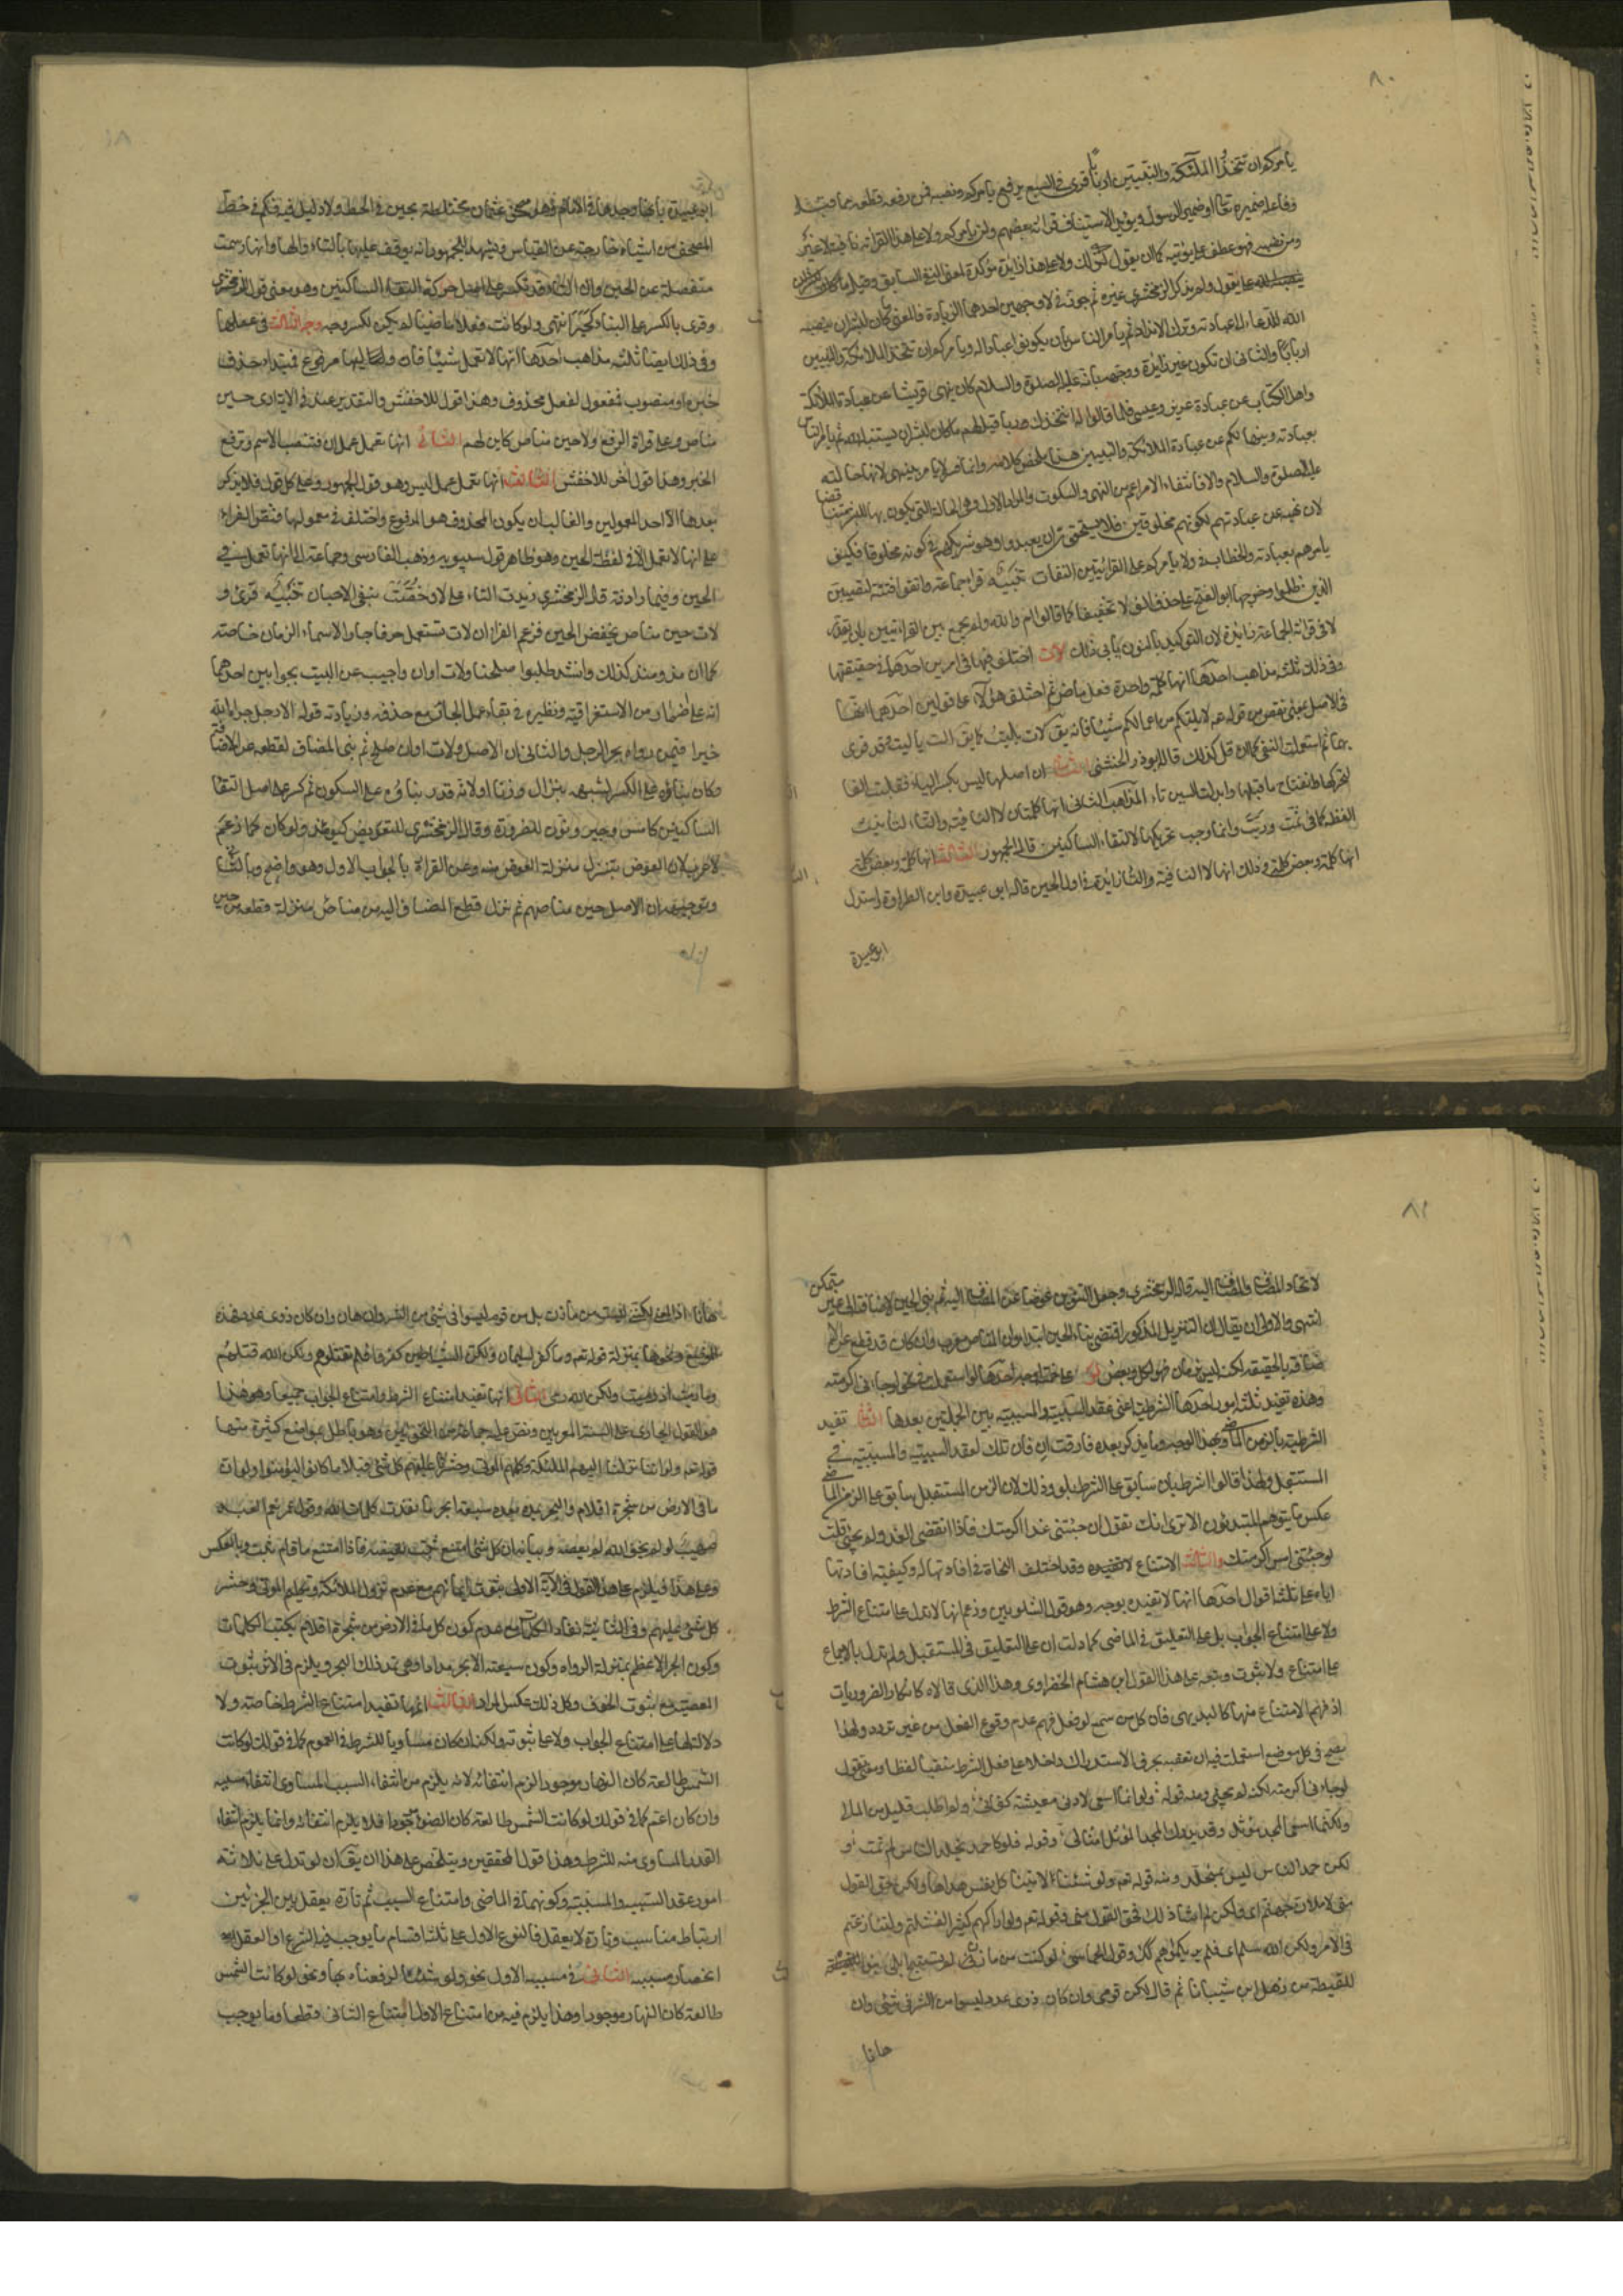 ٨٠
يامركم ان تتخذوا الملئكة والنبيين اربابا قرئ في السبع برفع يامركم ونصبه فمن رفعه قطعه عما قبله
وفاعله ضميره تعا او ضمير الرسول ويؤيد الاستيناف قرائة بعضهم ولن يامركم ولا على هذه القرائة نافية لا غير
ومن نصبه فهو عطف على يؤتيه كما ان يقول كذلك ولا على هذا زائدة مؤكدة لمعنى النفي السابق وقيل
على يقول ولم يذكر الزمخشري غيره ثم جوز في لا وجهين احدهما الزيادة فالمعنى ما كان لبشر ان ينصبه
الله للدعاء الى عبادته وترك الانداد ثم يامر الناس بان يكونوا عبادا له ويامركم ان تتخذوا الملائكة والنبيين
اربابا والثاني ان تكون غير زائدة ووجهه بانه عليه الصلوة والسلام كان ينهى قريشا عن عبادة الملائكة
واهل الكتاب عن عبادة عزير وعيسى فلما قالوا له انتخذك ربا قيل لهم ما كان لبشر ان يستنبئه الله ثم يامر الناس
بعبادته وينهاكم عن عبادة الملائكة والنبيين هذا ملخص كلامه وانما فسر لا يامر بينهى لانها حالته
عليه الصلوة والسلام والا فانتفاء الامر اعم من النهي والسكوت والمراد الاول وهي الحالة التي يكون بها البشر متناقضا
لان نهيه عن عبادتهم لكونهم مخلوقين فلا يستحقون ان يعبدوا وهو شريكهم في كونه مخلوقا فكيف
يامرهم بعبادته والخطاب في ولا يامركم على القرائتين التفات تنبيه قرا جماعة واتقوا فتنة لتصيبن
الذين ظلموا وخرجها ابو الفتح على حذف الف لا تخفيفا كما قالوا ام والله ولم يجمع بين القرائتين بان يقدر
لا في قرائة الجماعة زائدة لان التوكيد بالنون يأبى ذلك لات اختلف فيها في امرين احدهما في حقيقتها
وفي ذلك ثلثة مذاهب احدها انها كلمة واحدة فعل ماض ثم اختلف هؤلاء على قولين احدهما انها
في الاصل بمعنى نقص من قوله عم لا يلتكم من اعمالكم شيئا فانه يق لات يليت كما يق الت يالت وقد قرئ
بهما ثم استعملت للنفي كما ان قل كذلك قاله ابوذر الخشني والثاني ان اصلها ليس بكسر الياء فقلبت الفا
لتحركها وانفتاح ما قبلها وابدلت السين تاء المذهب الثاني انها كلمتان لا النافية والتاء لتانيث
اللفظة كما في ثمت وربت وانما وجب تحريكها لالتقاء الساكنين قاله الجمهور الثالث انها كلمة وبعض كلمة
انها كلمة وبعض كلمة وذلك انها لا النافية والتاء زائدة في اول الحين قاله ابو عبيدة وابن الطراوة واستدل
ابو عبيدة
ابو عبيدة بانه وجدها في الامام وهو مصحف عثمان مختلطة بحين في الخط ولا دليل فيه فكم في خط
المصحف من اشياء خارجة عن القياس ويشهد للجمهور انه يوقف عليها بالتاء والهاء وانها رسمت
منفصلة عن الحين وان التاء قد تكسر على اصل حركة التقاء الساكنين وهو معنى قول الزمخشري
وقرئ بالكسر على البناء كجير انتهى ولو كانت فعلا ماضيا لم يكن لكسر وجه الثاني في عملها
وفي ذلك ايضا ثلثة مذاهب احدها انها لا تعمل شيئا فان وليها مرفوع فمبتداء حذف
خبره او منصوب فمفعول لفعل محذوف وهذا قول للاخفش والتقدير عنده في الآية لا ارى حين
مناص وعلى قراءة الرفع ولا حين مناص كاين لهم الثاني انها تعمل عمل ان فتنصب الاسم وترفع
الخبر وهذا قول اخر للاخفش الثالث انها تعمل عمل ليس وهو قول الجمهور وعلى كل قول فلا يذكر
بعدها الا احد المعمولين والغالب ان يكون المحذوف هو المرفوع واختلف في معمولها فنص الفراء
على انها لا تعمل الا في لفظة الحين وهو ظاهر قول سيبويه وذهب الفارسي وجماعة الى انها تعمل في
الحين وفيما رادفه قال الزمخشري زيدت التاء على لا وخصت بنفي الاحيان تنبيه قرئ و
لات حين مناص بخفض الحين فزعم الفراء ان لات تستعمل حرفا جارا لاسماء الزمان خاصة
كما ان مذ ومنذ كذلك وانشد طلبوا صلحنا ولات اوان واجيب عن البيت بجوابين احدهما
انه على اضمار من الاستغراقية ونظيره في بقاء عمل الجار مع حذفه وزيادته قوله الا رجل جزاه الله
خيرا فيمن رواه بجر رجل والثاني ان الاصل ولات اوان صلح ثم بنى المضاف لقطعه عن الاضافة
وكان بناؤه على الكسر لشبهه بنزال وزنا او لانه قدر بناؤه على السكون ثم كسر على اصل التقاء
الساكنين كامس وجير ونون للضرورة وقال الزمخشري للتعويض كيومئذ ولو كان كما زعم
لاعرب لان العوض ينزل منزلة المعوض منه وعن القراءة بالجواب الاول وهو واضح وبالثاني
وتوجيهه ان الاصل حين مناصهم ثم نزل قطع المضاف اليه من مناص منزلة قطعه من حين
٨١
لاتحاد المضاف والمضاف اليه قاله الزمخشري وجعل التنوين عوضا عن المضاف اليه ثم بنى الحين لاضافته الى غير متمكن
انتهى والاولى ان يقال ان التنزيل المذكور اقتضى بناء الحين ابتداء وان المناص معرب وان كان قد قطع عن
ضافة بالحقيقة لكنه ليس بزمان فهو ككل وبعض لو على خمسة اوجه احدها لو المستعملة في نحو لو جاءني اكرمته
وهذه تفيد ثلثة امور احدها الشرطية اعني عقد السببية والمسببية بين الجملتين بعدها الثاني تقيد
الشرطية بالزمن الماضي وبهذا الوجه وما يذكر بعده فارقت ان فان تلك لعقد السببية والمسببية في
المستقبل ولهذا قالوا الشرط بان سابق على الشرط بلو وذلك لان الزمن المستقبل سابق على الزمن الماضي
عكس ما يتوهم المبتدئون الا ترى انك تقول ان جئتني غدا اكرمتك فاذا انقضى الغد ولم يجئ قلت
لو جئتني امس اكرمتك والثالث الامتناع وقد اختلف النحاة في افادتها له وكيفية افادتها
اياه على ثلثة اقوال احدها انها لا تفيده بوجه وهو قول الشلوبين وزعم انها لا تدل على امتناع الشرط
ولا على امتناع الجواب بل على التعليق في الماضي كما دلت ان على التعليق في المستقبل ولم تدل بالاجماع
على امتناع ولا ثبوت وتبعه على هذا القول ابن هشام الخضراوي وهذا الذي قالاه كانكار الضروريات
اذ فهم الامتناع منها كالبديهي فان كل من سمع لو فعل فهم عدم وقوع الفعل من غير تردد ولهذا
يصح في كل موضع استعملت فيه ان تعقبه بحرف الاستدراك داخلا على فعل الشرط منفيا لفظا او معنى تقول
لو جاءني اكرمته لكنه لم يجئ ومنه قوله ولو انما اسعى لادنى معيشة كفاني ولم اطلب قليل من المال
ولكنما اسعى لمجد مؤثل وقد يدرك المجد المؤثل امثالي وقوله فلو كان حمد يخلد الناس لم تمت و
لكن حمد الناس ليس بمخلد ومنه قوله تعم ولو شئنا لآتينا كل نفس هداها ولكن حق القول
مني لاملان جهنم اي ولكن لم اشا ذلك فحق القول مني وقوله تعم ولو اراكهم كثيرا لفشلتم ولتنازعتم
في الامر ولكن الله سلم اي فلم يريكموهم كذلك وقول الحماسي لو كنت من مازن لم تستبح ابلي بنو اللقيطة
للقيطة من ذهل ابن شيبانا ثم قال لكن قومي وان كانوا ذوي عدد ليسوا من الشر في شيء وان
هانا
هانا اذ المعنى لكنني لست من مازن بل من قوم ليسوا في شيء من الشر وان هان وان كان ذوي عدد فهذه
المواضع ونحوها بمنزلة قوله تعم وما كفر سليمان ولكن الشياطين كفروا فلم تقتلوهم ولكن الله قتلهم
وما رميت اذ رميت ولكن الله رمى الثاني انها تفيد امتناع الشرط وامتناع الجواب جميعا وهذا
هو القول الجاري على السنة المعربين ونص عليه جماعة من النحويين وهو باطل بمواضع كثيرة منها
قوله تعم ولو اننا نزلنا اليهم الملئكة وكلمهم الموتى وحشرنا عليهم كل شيء قبلا ما كانوا ليؤمنوا ولو ان
ما في الارض من شجرة اقلام والبحر يمده من بعده سبعة ابحر ما نفدت كلمات الله وقول عمر نعم العبد
صهيب لو لم يخف الله لم يعصه وبيانه ان كل شيء امتنع ثبت نقيضه فاذا امتنع ما قام ثبت قام وبالعكس
وعلى هذا فيلزم على هذا القول في الآية الاولى ثبوت ايمانهم مع عدم نزول الملائكة وتكليم الموتى وحشر
كل شيء عليهم وفي الثانية نفاد الكلمات مع عدم كون كل ما في الارض من شجرة اقلام يكتب الكلمات
وكون البحر الاعظم بمنزلة الدواة وكون سبعة الابحر مدادا وهي تمد ذلك البحر ويلزم في الاثر ثبوت
المعصية مع ثبوت الخوف وكل ذلك عكس المراد الثالث انها تفيد امتناع الشرط خاصة ولا
دلالة لها على امتناع الجواب ولا على ثبوته ولكنه ان كان مساويا للشرط في العموم كما في قولك لو كانت
الشمس طالعة كان النهار موجودا لزم انتفائه لانه يلزم من انتفاء السبب المساوي انتفاء مسببه
وان كان اعم كما في قولك لو كانت الشمس طالعة كان الضوء موجودا فلا يلزم انتفائه وانما يلزم انتفاء
القدر المساوي منه للشرط وهذا قول المحققين ويتلخص على هذا ان يق ان لو تدل على ثلاثة
امور عقد السببية والمسببية وكونهما في الماضي وامتناع السبب ثم تارة يعقل بين الجزئين
ارتباط مناسب وتارة لا يعقل فالنوع الاول على ثلثة اقسام ما يوجب فيه الشرع او العقل
انحصار مسببية الثاني في سببية الاول نحو ولو شئنا لرفعناه بها ونحو لو كانت الشمس
طالعة كان النهار موجودا وهذا يلزم فيه من امتناع الاول امتناع الثاني قطعا وما يوجب